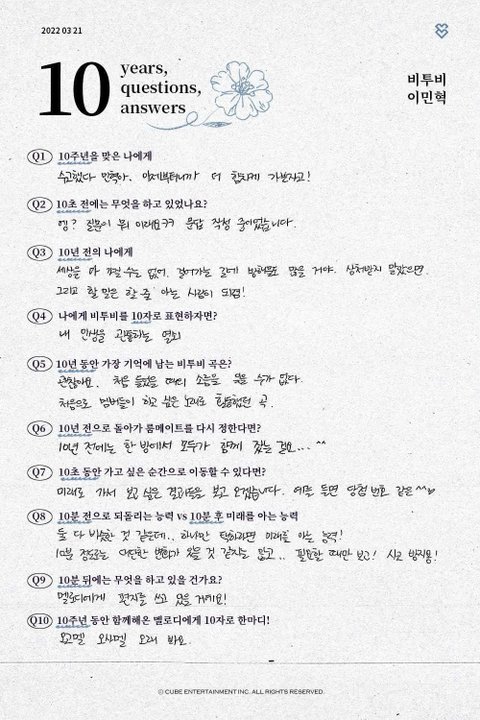 2022 03 21
10 years,
questions,
answers
비투비
이민혁
Q1 10주년을 맞은 나에게
수고했다 민혁아. 이제부터니까 더 힘차게 가보자고!
Q2 10초 전에는 무엇을 하고 있었나요?
엥? 질문이 뭐 이래요ㅋㅋ 문답 작성 중이었습니다.
Q3 10년 전의 나에게
세상을 다 가질 수는 없어. 걸어가는 길에 방해물도 많을 거야. 상처받지 말았으면.
그리고 할 말은 할 줄 아는 사람이 되렴!
Q4 나에게 비투비를 10자로 표현하자면?
내 인생을 관통하는 열쇠
Q5 10년 동안 가장 기억에 남는 비투비 곡은?
괜찮아요. 처음 들었을 때의 소름을 잊을 수가 없다.
처음으로 멤버들이 하고 싶은 노래로 활동했던 곡.
Q6 10년 전으로 돌아가 룸메이트를 다시 정한다면?
10년 전에는 한 방에서 모두가 함께 잤는 걸요... ^^
Q7 10초 동안 가고 싶은 순간으로 이동할 수 있다면?
미래로 가서 보고 싶은 결과들을 보고 오겠습니다. 예를 들면 당첨 번호 같은 ^^
Q8 10분 전으로 되돌리는 능력 vs 10분 후 미래를 아는 능력
둘 다 비슷한 것 같은데.. 하나만 택하라면 미래를 아는 능력!
10분 정도로는 대단한 변화가 있을 것 같지는 않고.. 필요할 때만 보고! 사고 방지용!
Q9 10분 뒤에는 무엇을 하고 있을 건가요?
멜로디에게 편지를 쓰고 있을 거예요!
Q10 10주년 동안 함께해온 멜로디에게 10자로 한마디!
고멜 오사멜 오래 봐요.
© CUBE ENTERTAINMENT INC. ALL RIGHTS RESERVED.